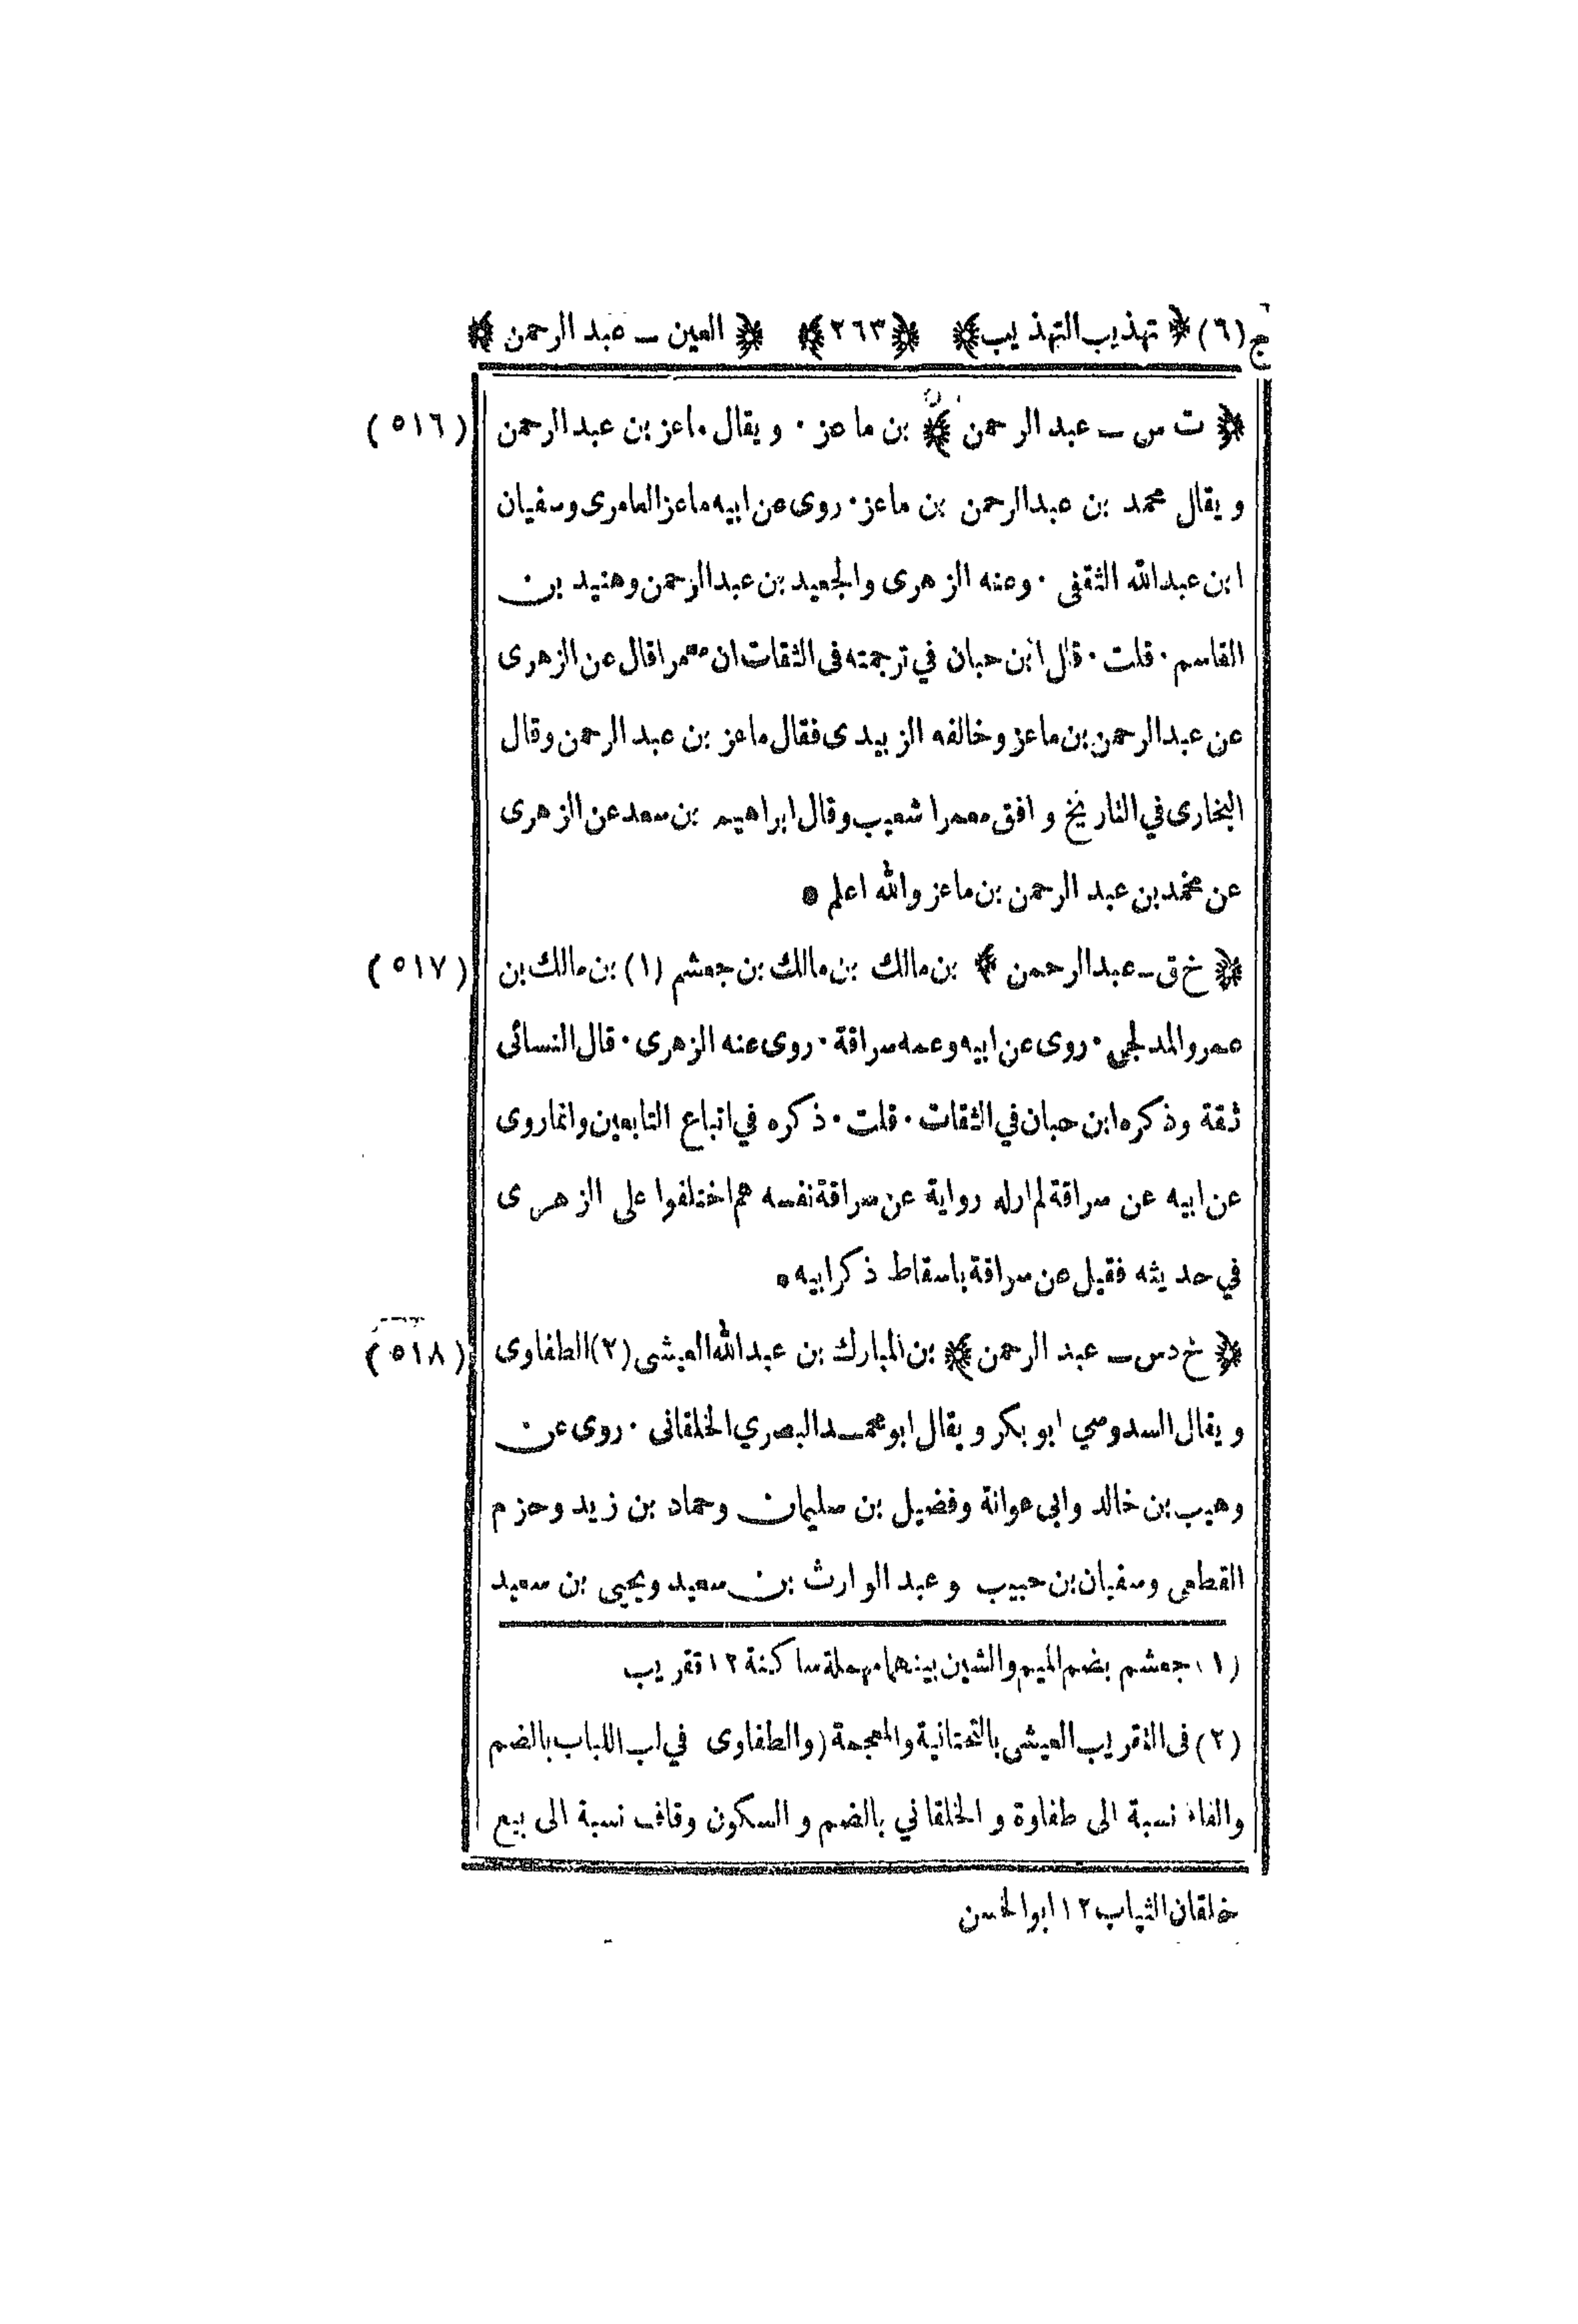 ج (٦) ﴿ تهذيب التهذيب ﴾ ﴿ ٢٦٣ ﴾ ﴿ العين ـ عبد الرحمن ﴾
﴿ ت س ـ عبد الرحمن ﴾ بن ماعز · ويقال ماعز بن عبد الرحمن (٥١٦)
ويقال محمد بن عبد الرحمن بن ماعز · روى عن ابيه ماعز العامرى وسفيان
ابن عبد الله الثقفى · وعنه الزهرى والجعيد بن عبد الرحمن وهنيد بن
القاسم · قلت · قال ابن حبان في ترجمته فى الثقات ان معمرا قال عن الزهرى
عن عبد الرحمن بن ماعز وخالفه الزبيدى فقال ماعز بن عبد الرحمن وقال
البخارى في التاريخ وافق معمرا شعيب وقال ابراهيم بن سعد عن الزهرى
عن محمد بن عبد الرحمن بن ماعز والله اعلم ٭
﴿ خ ق ـ عبد الرحمن ﴾ بن مالك بن مالك بن جعشم (١) بن مالك بن (٥١٧)
عمرو المدلجي · روى عن ابيه وعمه سراقة · روى عنه الزهرى · قال النسائى
ثقة وذكره ابن حبان في الثقات · قلت · ذكره في اتباع التابعين وانما روى
عن ابيه عن سراقة لم ار له رواية عن سراقة نفسه هم اختلفوا على الزهرى
في حديثه فقيل عن سراقة باسقاط ذكر ابيه ٭
﴿ خ د س ـ عبد الرحمن ﴾ بن المبارك بن عبد الله العيشى (٢) الطفاوى (٥١٨)
ويقال السدوسي ابو بكر ويقال ابو محمد البصري الخلقانى · روى عن
وهيب بن خالد وابى عوانة وفضيل بن سليمان وحماد بن زيد وحزم
القطعي وسفيان بن حبيب وعبد الوارث بن سعيد ويحيى بن سعيد
(١) جعشم بضم الميم والشين بينهما مهملة ساكنة ١٢ تقريب
(٢) فى التقريب العيشى بالتحتانية والمعجمة (والطفاوى في لب اللباب بالضم
والفاء نسبة الى طفاوة والخلقاني بالضم والسكون وقاف نسبة الى بيع
خلقان الثياب ١٢ ابو الحسن